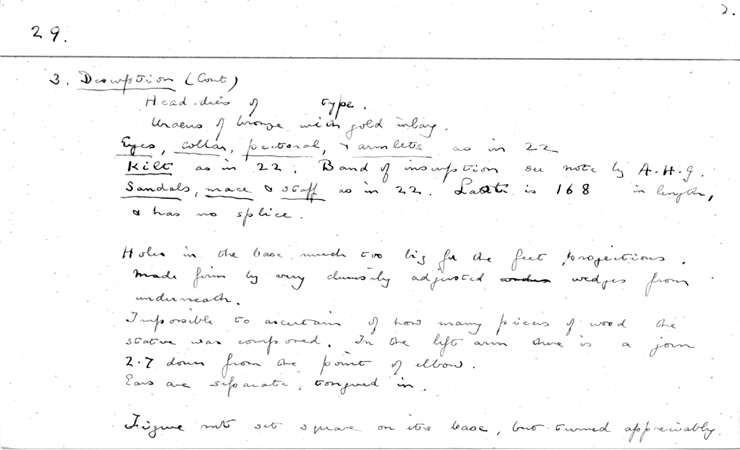 2.
29.
3. Description (Cont)
Head-dress of type.
Uraeus of bronze with gold inlay.
Eyes, collar, pectoral, & armlets as in 22
Kilt as in 22. Band of inscription see note by A.H.G.
Sandals, mace & staff as in 22. Latter is 168 in length,
& has no splice.
Holes in the base much too big for the feet projections.
Made firm by very clumsily adjusted wedges from
underneath.
Impossible to ascertain of how many pieces of wood the
statue was composed. In the left arm there is a join
2.7 down from the point of elbow.
Ears are separate, tongued in.
Figure not set square on its base, but turned appreciably